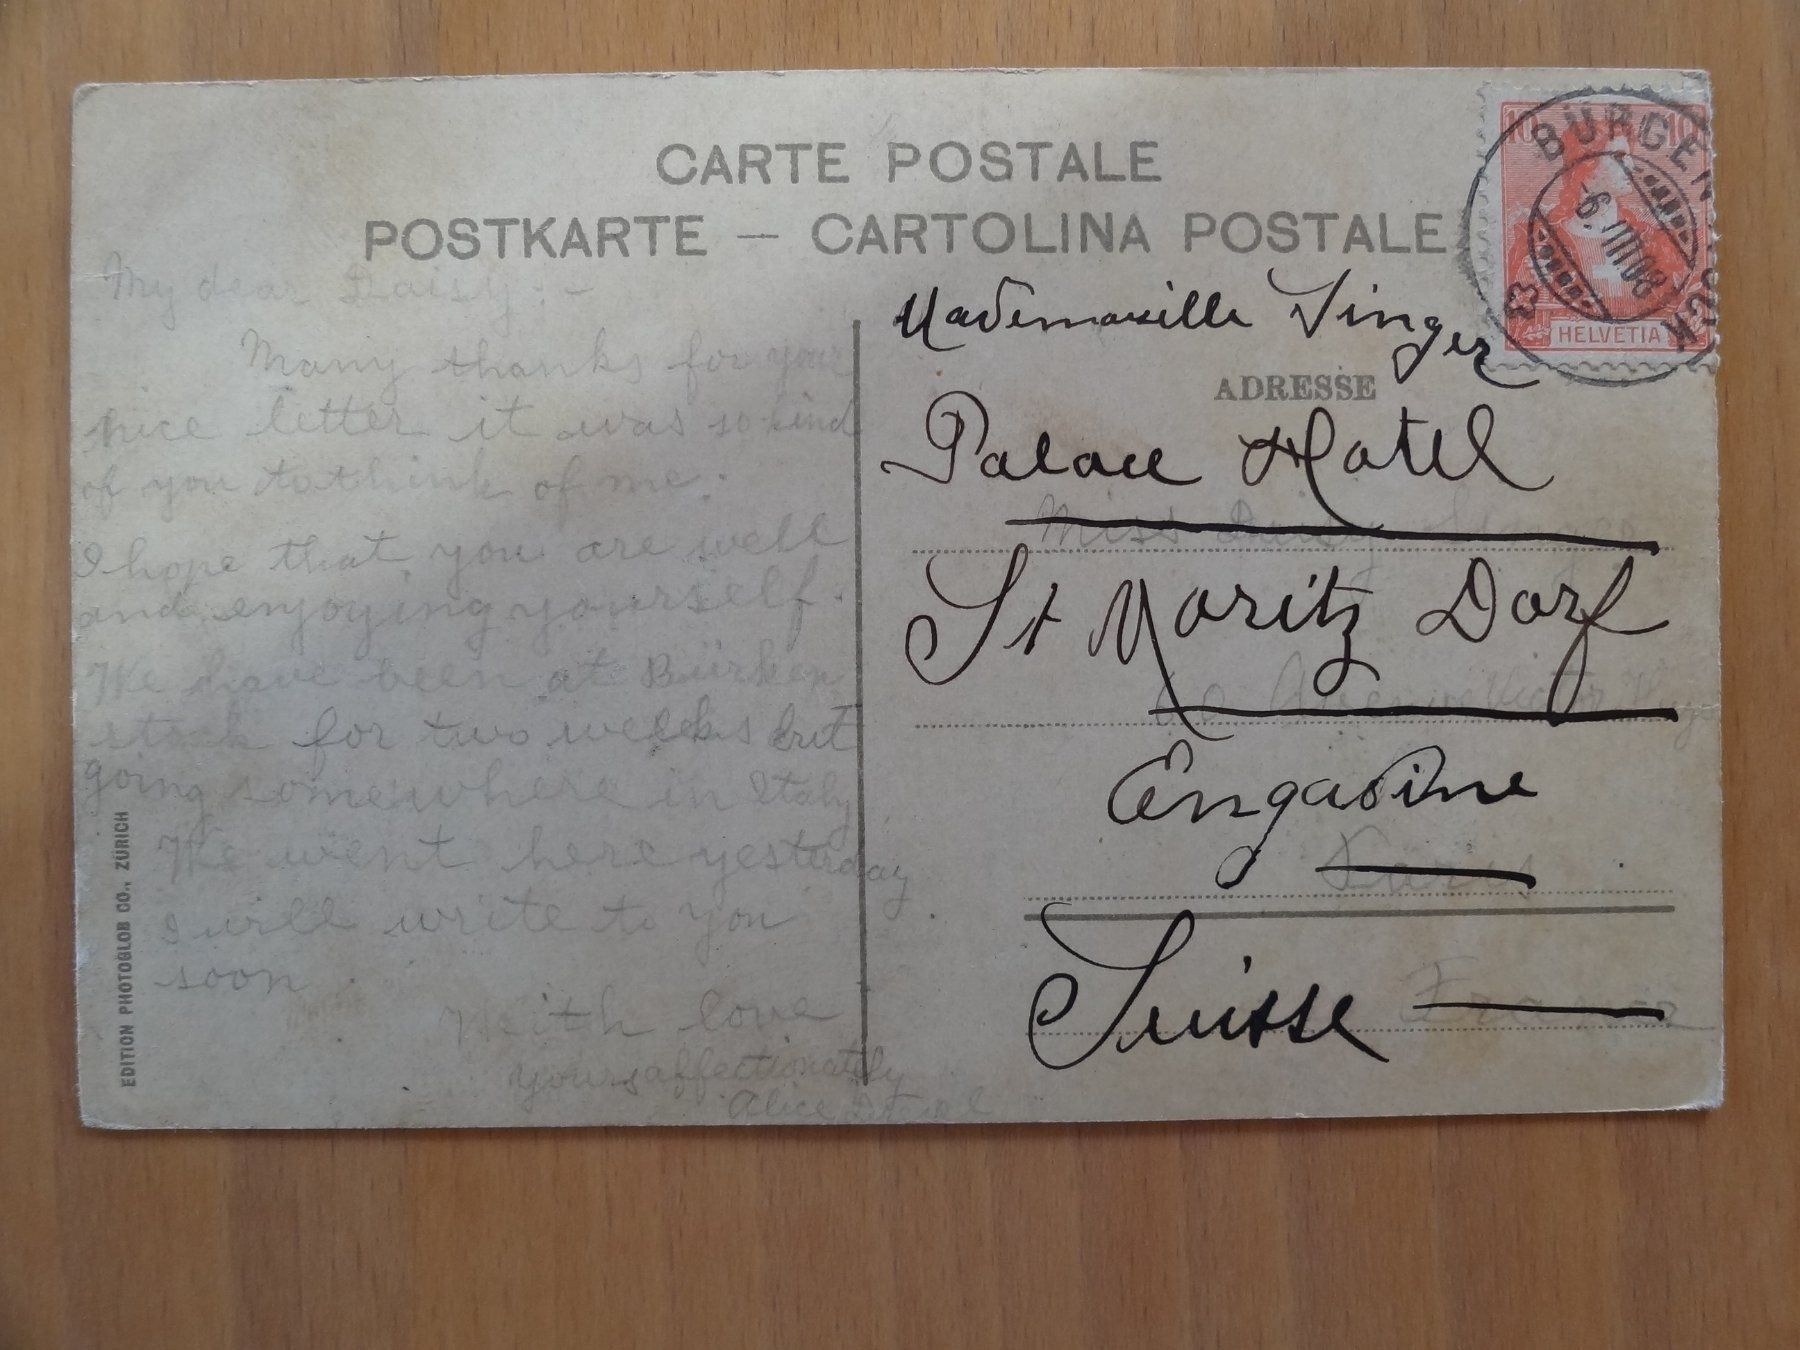 CARTE POSTALE
POSTKARTE — CARTOLINA POSTALE
My dear Daisy : -
Many thanks for your
nice letter it was so kind
of you to think of me.
I hope that you are well
and enjoying yourself.
We have been at Bürken
stock for two weeks but
going somewhere in Italy
We went here yesterday
I will write to you
soon.
With love
yours affectionately
Alice
EDITION PHOTOGLOB CO., ZÜRICH
10 10
HELVETIA
BÜRGENSTOCK
-6.VIII.08
Mademoiselle Singer
ADRESSE
Palace Hotel
Miss Daisy
St Moritz Dorf
Avenue Victor Hugo
Engadine
Paris
Suisse
France